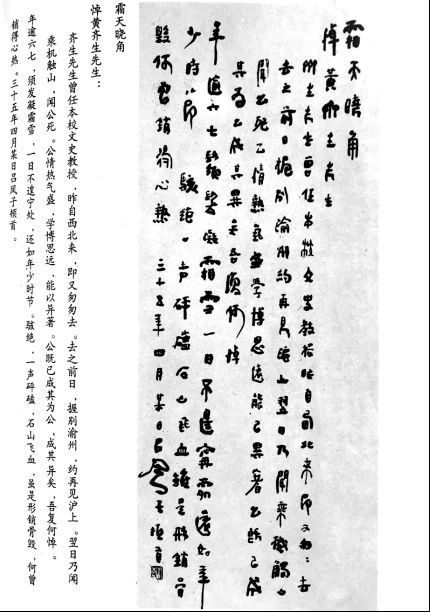 霜天曉角
悼黃齊生先生
齊生先生曾任本校文史教授昨自西北來即又匆〻去
去之前日握别渝州約再見滬上翌日乃聞乘機觸山
聞公死公情熱氣盛學博思遠能以異著公既已成
其為公成其異矣吾復何悼
年逾六七鬚髮凝霜雪一日不遑寧處還如年
少時節 駭絕一聲砰磕石山飛血雖是形銷骨
毀何曾銷得心熱 三十五年四月某日呂鳳子頓首
霜天晓角
悼黄齐生先生：
齐生先生曾任本校文史教授，昨自西北来，即又匆匆去。去之前日，握别渝州，约再见沪上。翌日乃闻
乘机触山，闻公死。公情热气盛，学博思远，能以异著。公既已成其为公，成其异矣，吾复何悼。
年逾六七，须发凝霜雪，一日不遑宁处，还如年少时节。骇绝，一声砰磕，石山飞血，虽是形销骨毁，何曾
销得心热。三十五年四月某日吕凤子顿首。